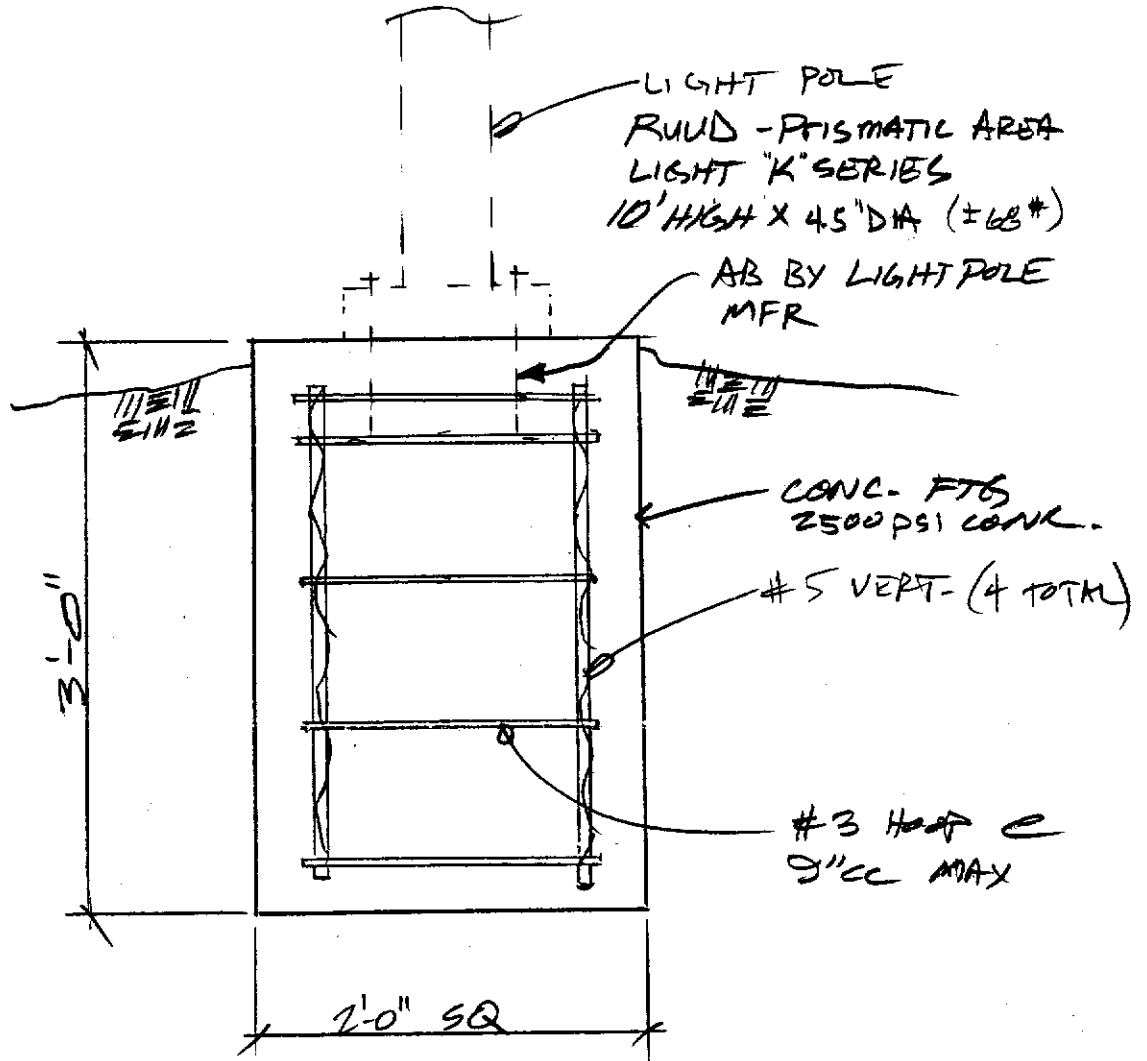 LIGHT POLE
RUUD - PRISMATIC AREA
LIGHT "K" SERIES
10' HIGH X 4.5" DIA (±68#)
AB BY LIGHT POLE
MFR
CONC. FTG
2500 PSI CONC.
#5 VERT. (4 TOTAL)
#3 HOOP @
9"CC MAX
3'-0"
2'-0" SQ